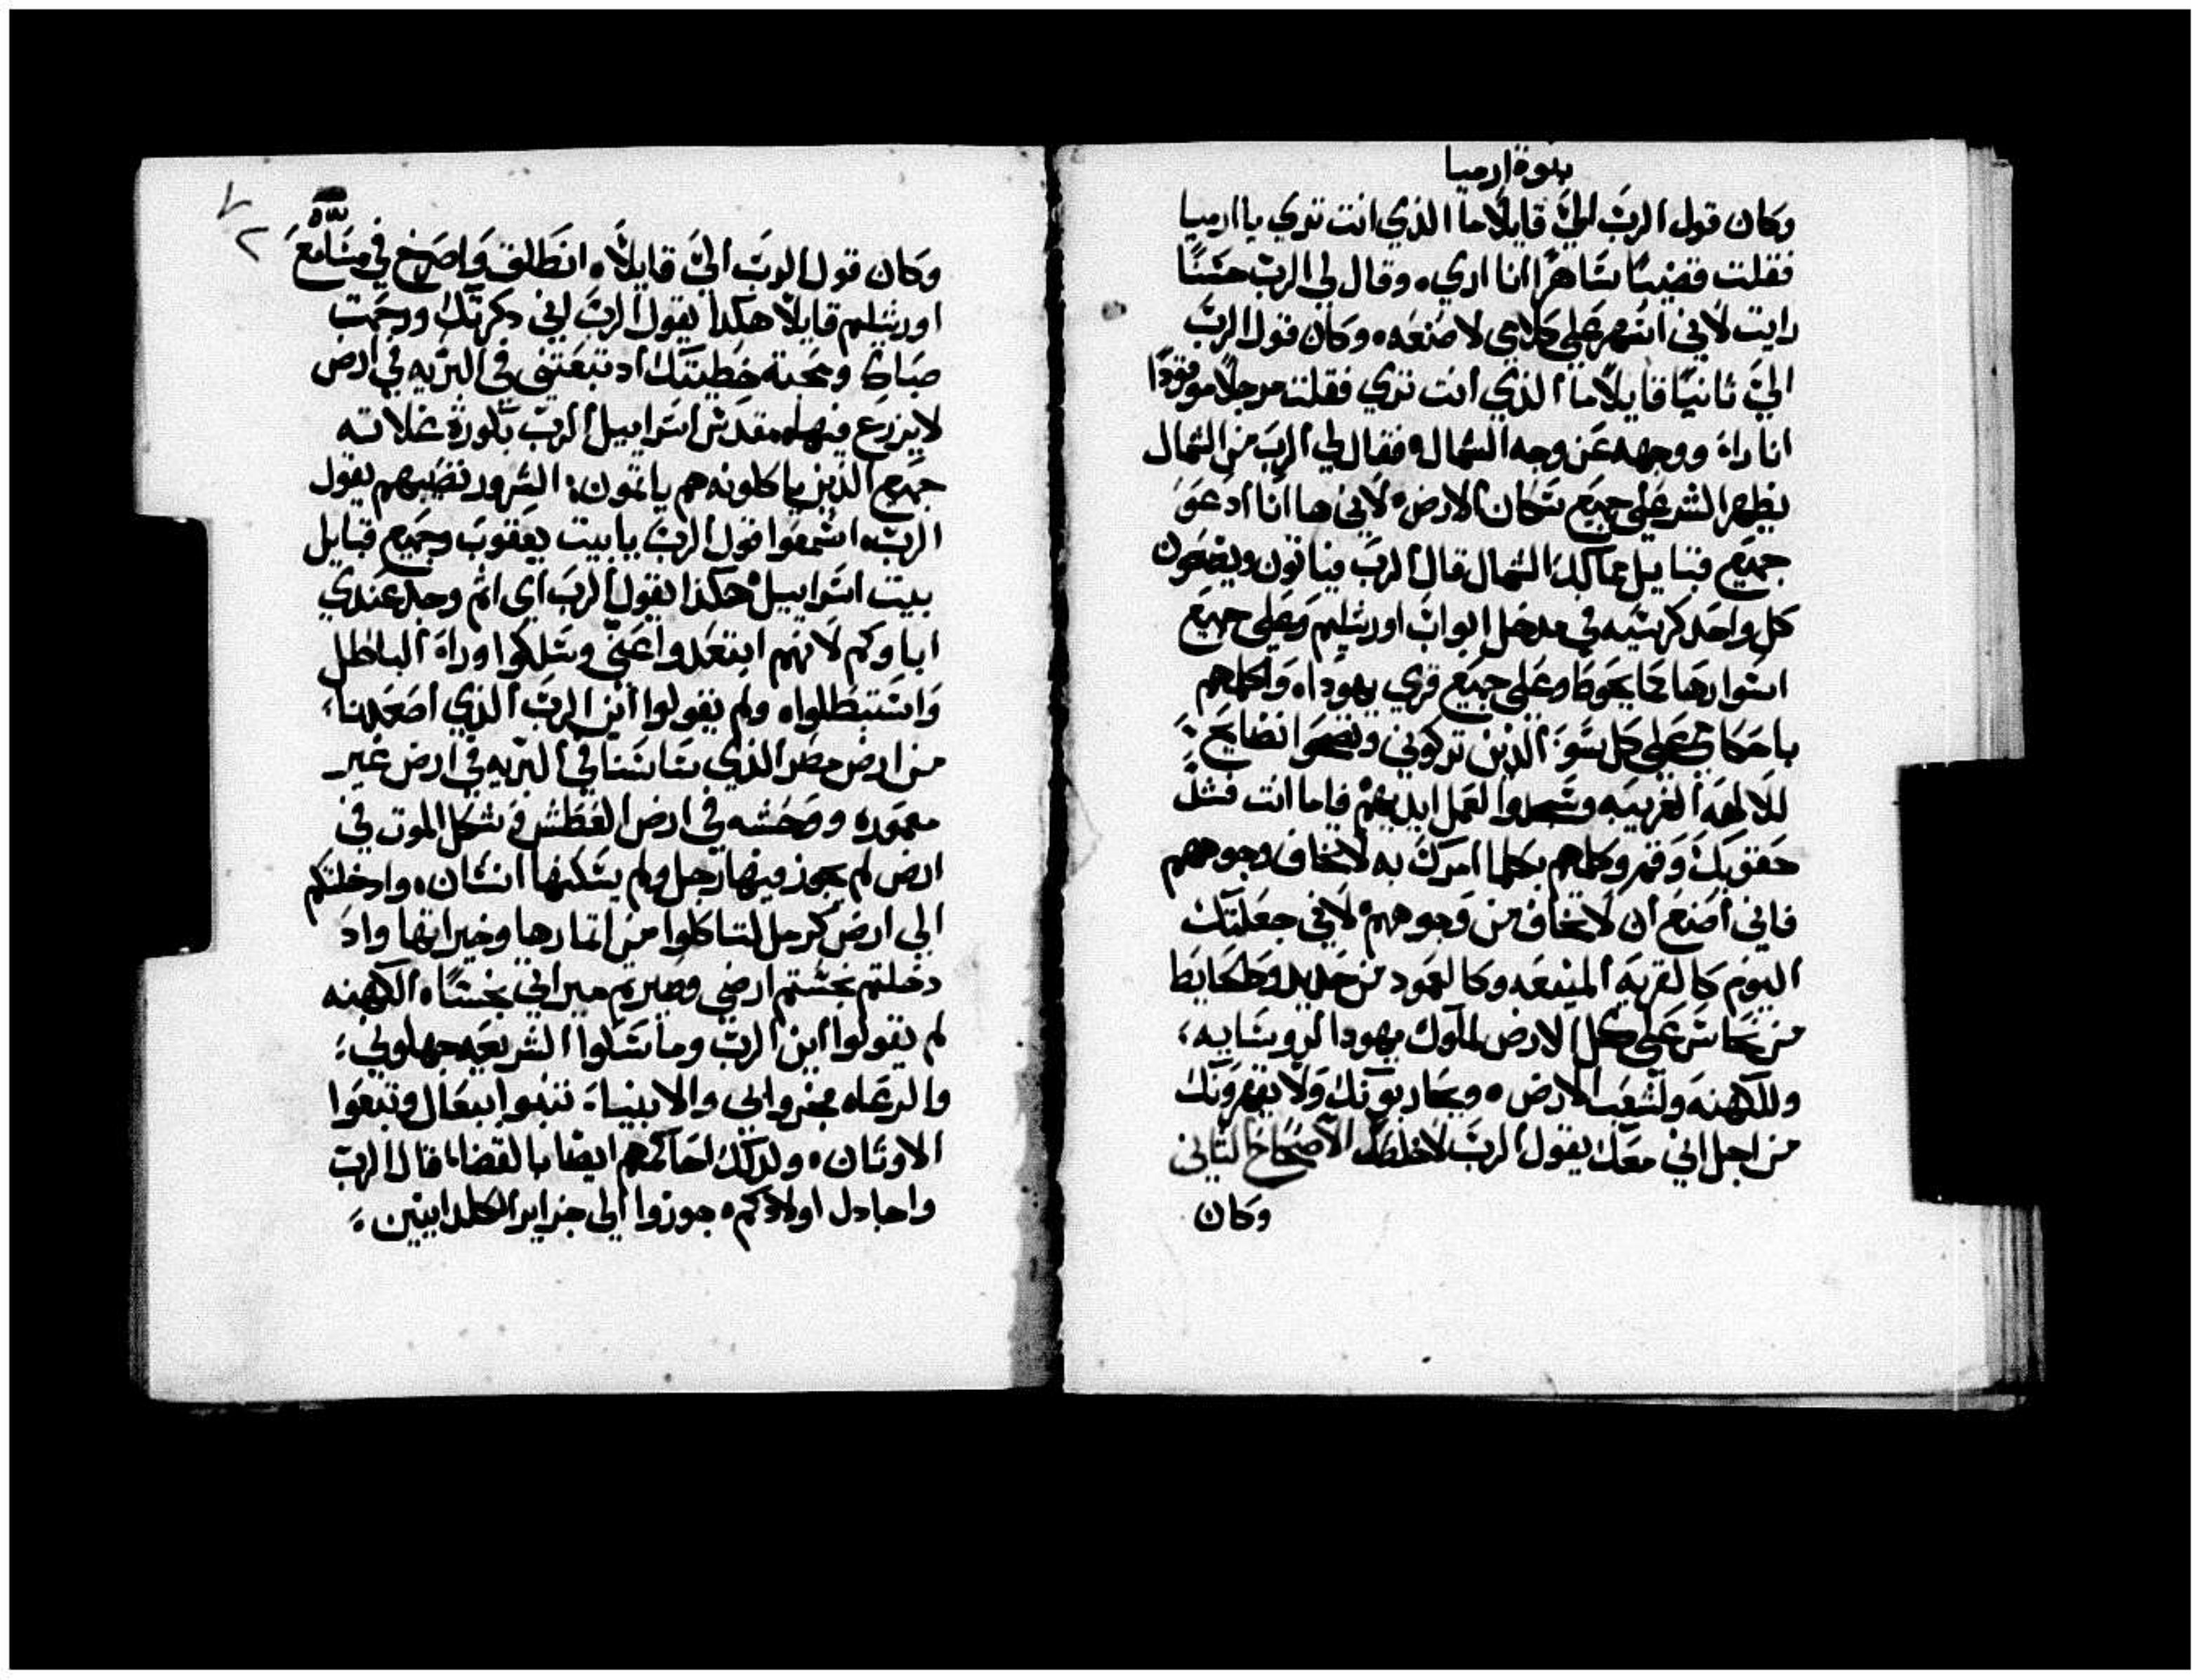 بنوة ارميا
وكان قول الرب الي قايلا ما الذي انت تري يا ارميا
فقلت قضيبا ساهرا انا اري ه وقال لي الرب حسنا
رايت لاني اسهر علي كلامي لاصنعه ه وكان قول الرب
الي ثانيا قايلا ما الذي انت تري فقلت مرجلا موقودا
انا راء ووجهه عن وجه الشمال ه فقال لي الرب من الشمال
يظهر الشر علي جميع سكان الارض ه لاني ها انا ادعو
جميع قبايل ممالك الشمال قال الرب فياتون ويضعون
كل واحد كرسيه في مدخل ابواب اورشليم وعلي جميع
اسوارها مما يحوطا وعلي جميع قري يهودا ه واكلمهم
باحكامي علي كل سو الذين تركوني ونضحوا نضايح
للالهه الغريبه وسجدوا لعمل ايديهم فاما انت فشد
حقويك وقم وكلمهم بكلما امرك به لا تخاف وجوههم
فاني اصنع ان لا تخاف من وجوههم ه لاني جعلتك
اليوم كالقريه المنيعه وكالعمود من حديد وكحايط
من نحاس علي كل الارض لملوك يهودا لروسايه
وللكهنه ولشعب الارض ه ويحاربونك ولا يقهرونك
من اجل اني معك يقول الرب لاخلصك الاصحاح التاني
وكان
وكان قول الرب الي قايلا ه انطلق واصرخ في مسامع
اورشليم قايلا هكدا يقول الرب اني دكرتك ورحمت
صباك ومحبة خطيبتك اد تبعتني في البريه في ارض
لا يزرع فيها ه مقدس اسراييل الرب بكورة غلاته
جميع الذين ياكلونه هم ياثمون : الشرور تصيبهم يقول
الرب ه اسمعوا قول الرب يا بيت يعقوب وجميع قبايل
بيت اسراييل ه هكذا يقول الرب اي اثم وجد عندي
اباوكم لانهم ابتعدوا عني وسلكوا وراة الباطل
واستبطلوا ه ولم يقولوا اين الرب الذي اصعدنا
من ارض مصر الذي ساسنا في البريه في ارض غير
معموره ووحشه في ارض العطش وشكل الموت في
ارض لم يجوز فيها رجل ولم يسكنها انسان ه وادخلتكم
الي ارض كرمل لتاكلوا من اثمارها وخيراتها واد
دخلتم نجستم ارضي وصيرتم ميراتي نجسا ه الكهنه
لم يقولوا اين الرب وماسكوا الشريعه جهلوني :
والرعاه فجروا بي والانبياة تنبوا ببعال وتبعوا
الاوتان ه ولدلك احاكمهم ايضا بالقضا ه قال الرب
واجادل اولادكم ه جوزوا الي جزاير الكلدانيين